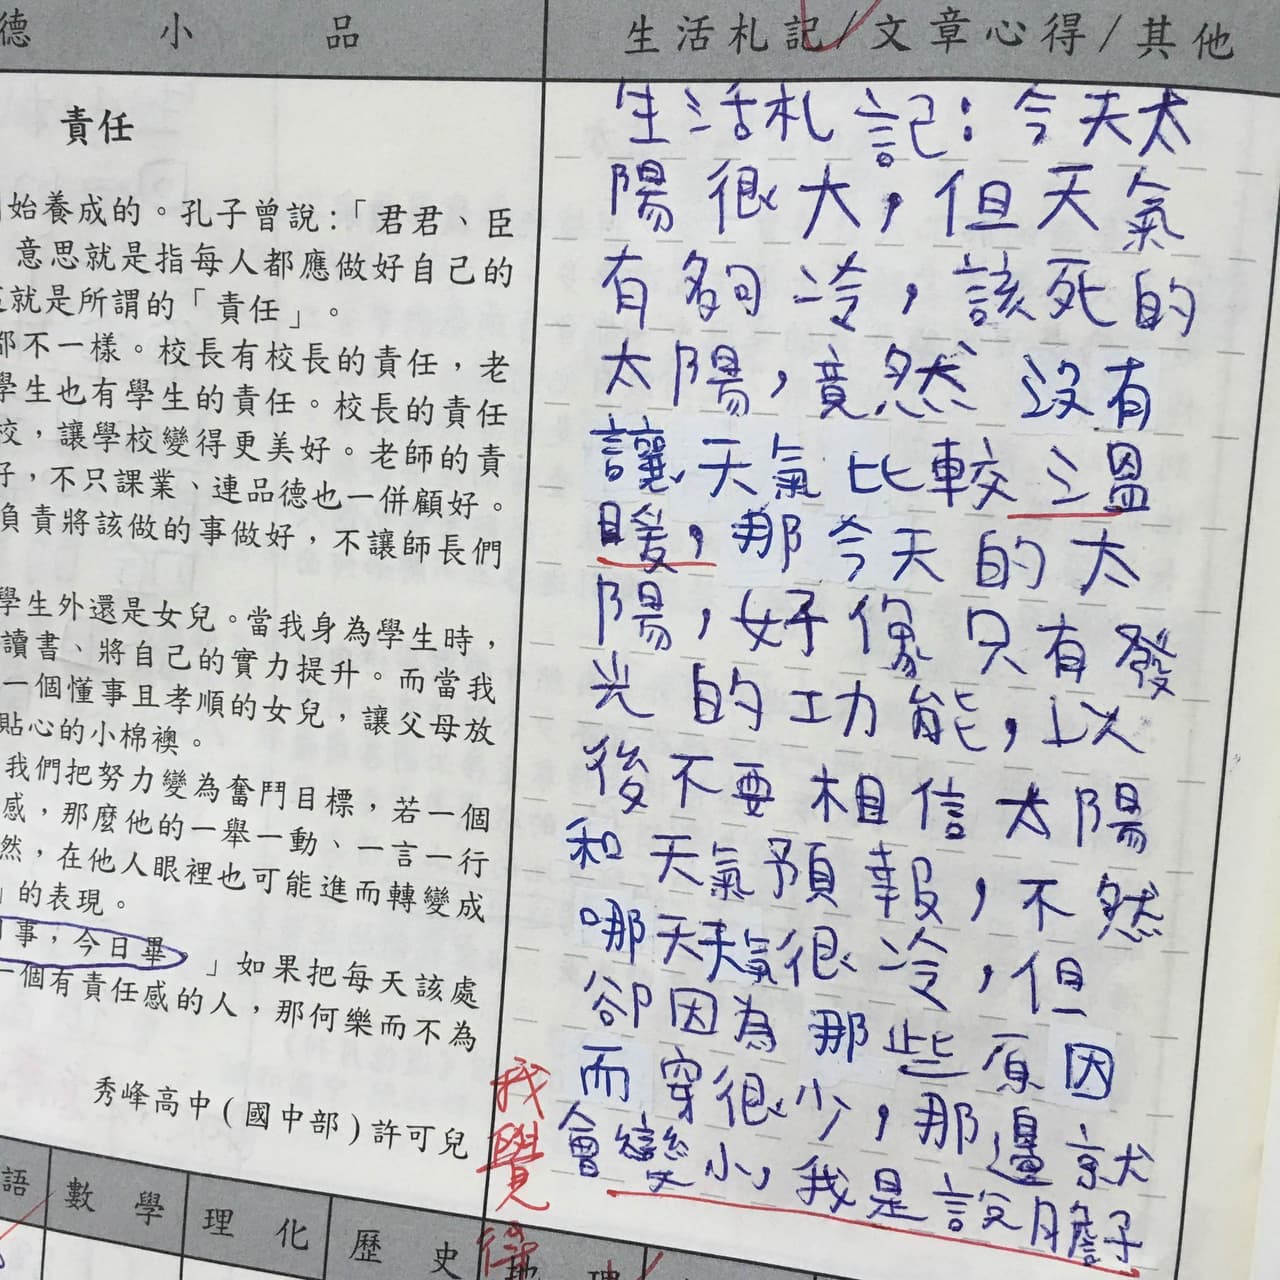 德小品
責任
始養成的。孔子曾說:「君君、臣
意思就是指每人都應做好自己的
就是所謂的「責任」。
都不一樣。校長有校長的責任,老
學生也有學生的責任。校長的責任
校,讓學校變得更美好。老師的責
子,不只課業、連品德也一併顧好。
負責將該做的事做好,不讓師長們
學生外還是女兒。當我身為學生時,
讀書、將自己的實力提升。而當我
一個懂事且孝順的女兒,讓父母放
貼心的小棉襖。
我們把努力變為奮鬥目標,若一個
感,那麼他的一舉一動、一言一行
然,在他人眼裡也可能進而轉變成
」的表現。
事,今日畢。」如果把每天該處
一個有責任感的人,那何樂而不為
秀峰高中(國中部)許可兒
語 數學 理化 歷史 地理
生活札記/文章心得/其他
生活札記:今天太
陽很大,但天氣
有夠冷,該死的
太陽,竟然沒有
讓天氣比較溫
暖,那今天的太
陽,好像只有發
光的功能,以
後不要相信太陽
和天氣預報,不然
哪天天氣很冷,但
卻因為那些原因
而穿很少,那邊就
會變小,我是說膽子
我覺得